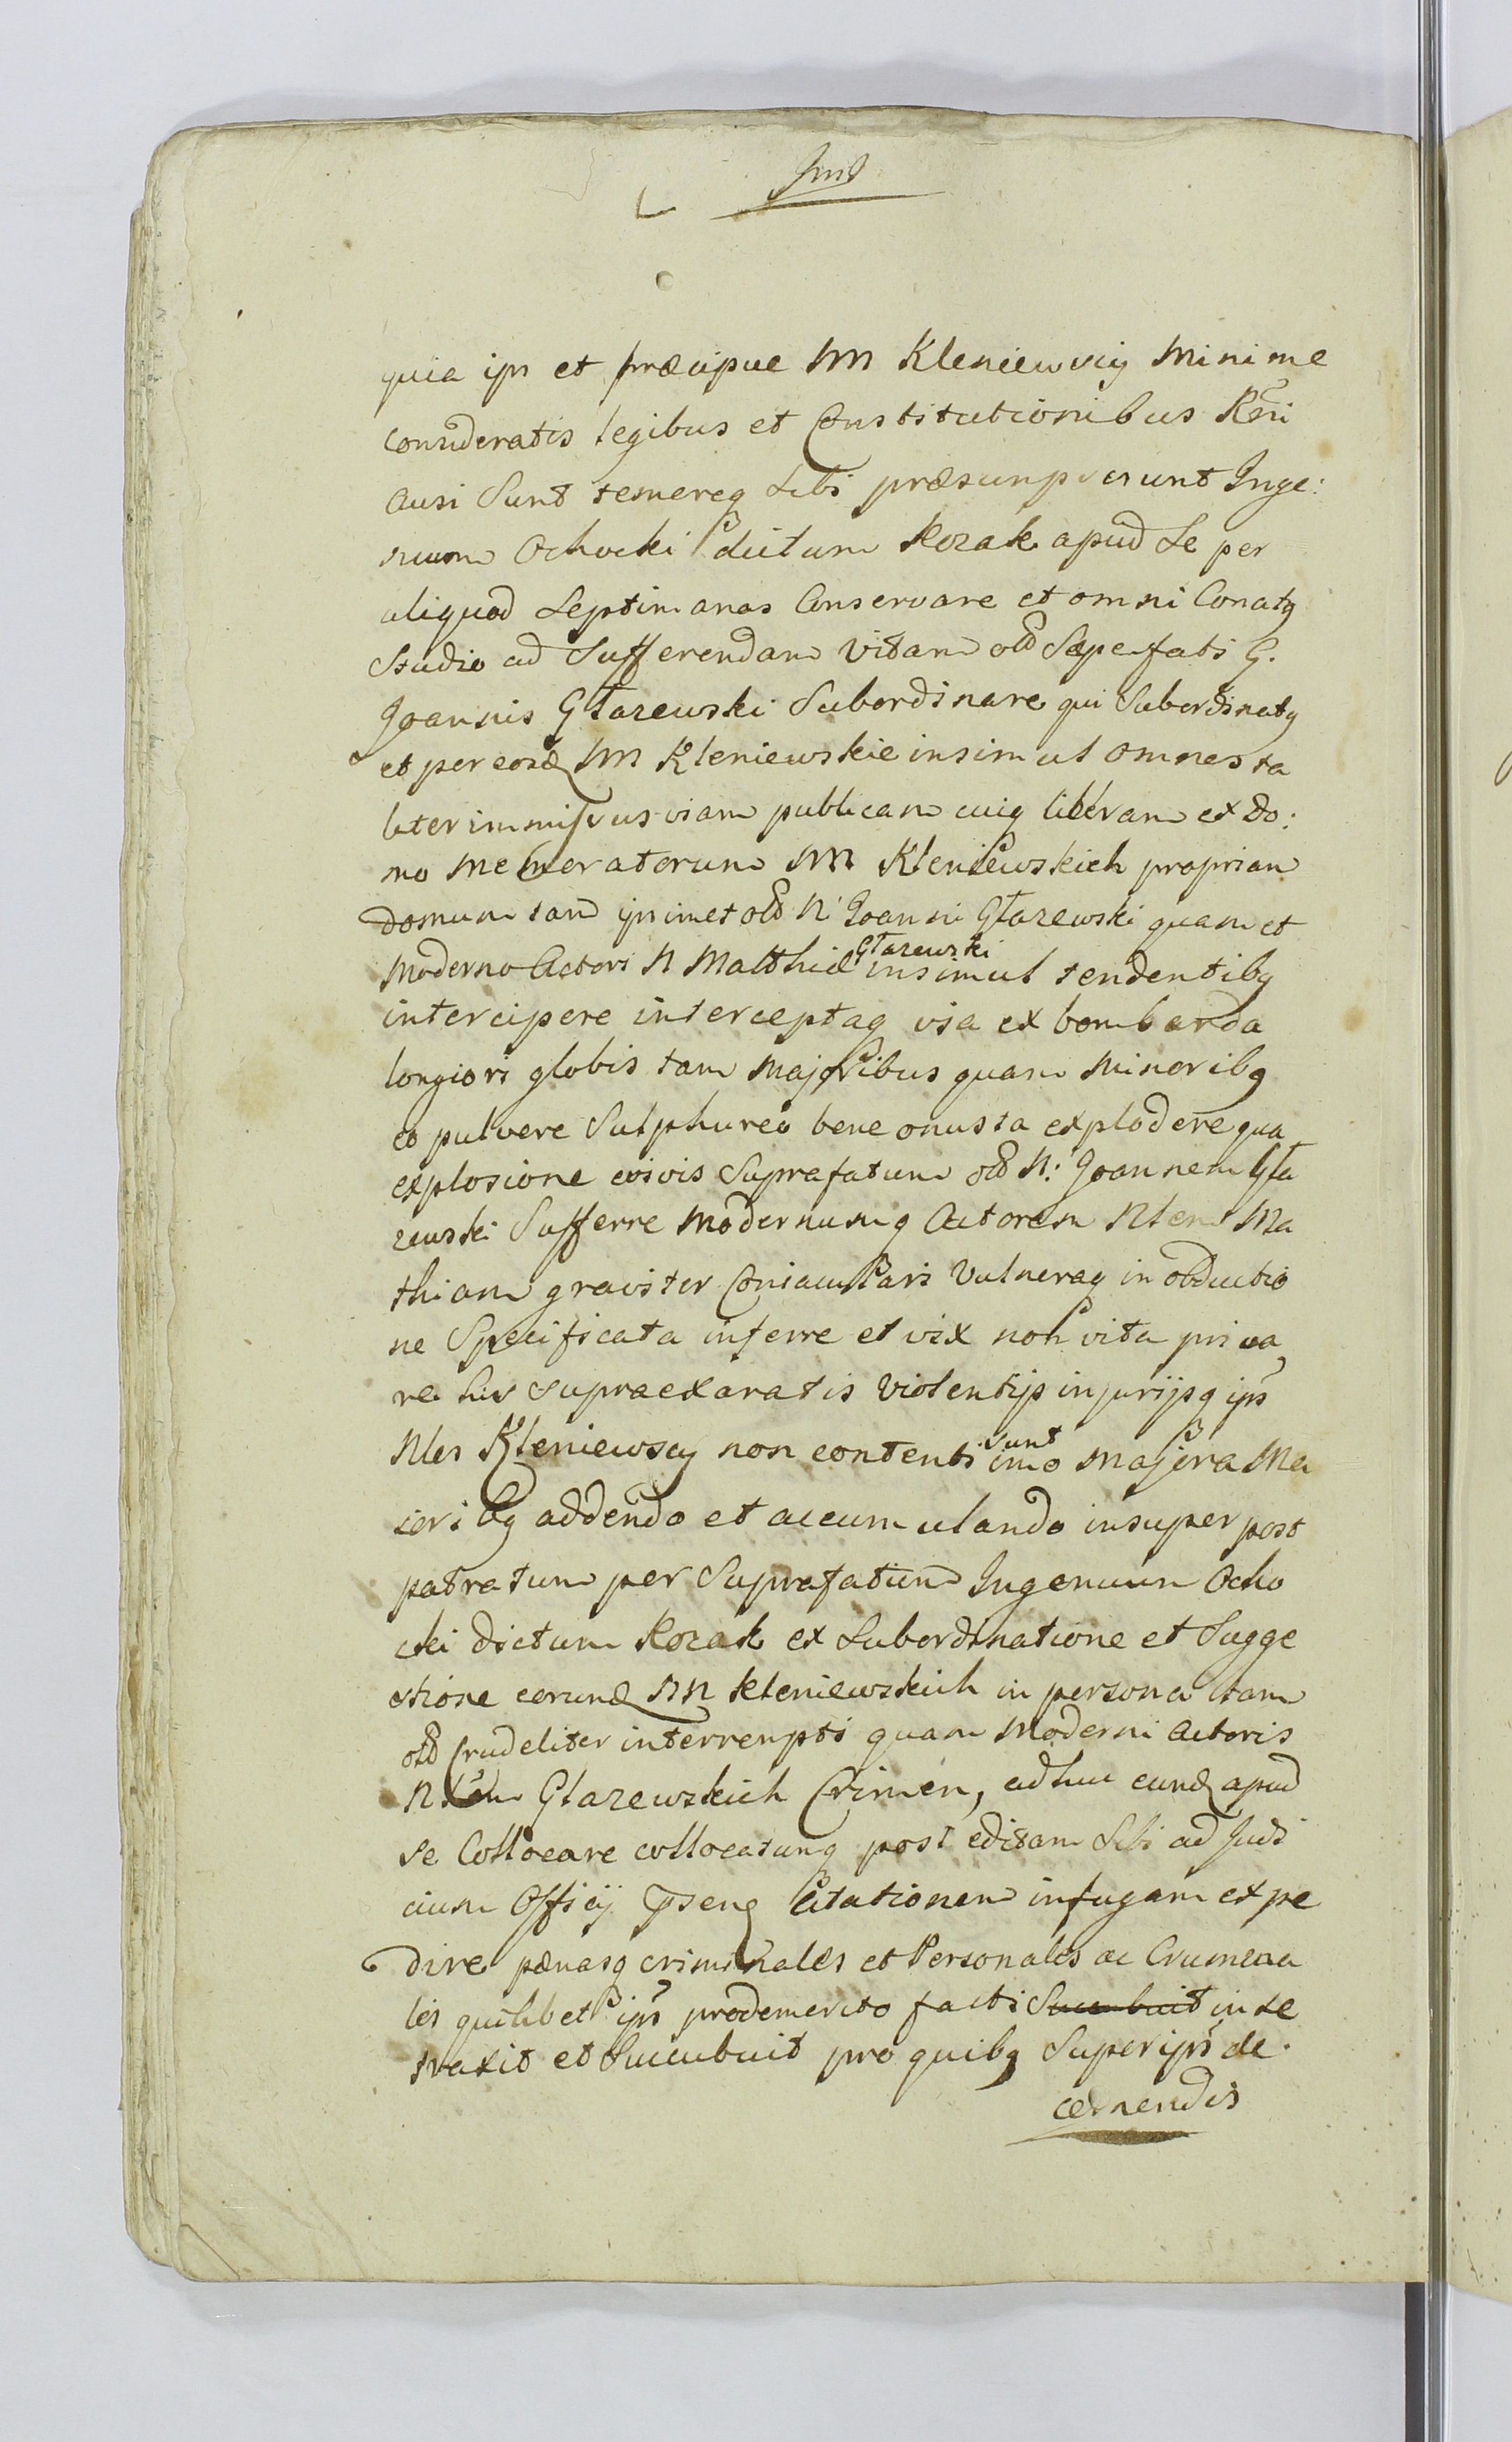 quia ipsi et præcipue NN Kleniewscy Minime
consideratis legibus et Constitutionibus Rñi
ausi Sunt temereq Sibi præsumpserunt Inge:
nuum Ochocki dictum Kozak apud Se per
aliquod Septimanas Conservare et omni Conatq
Studio ad Sufferendam Vitam old Sæpefati G.
Joannis Głazewski Subordinare qui Subordinatq
et per eosdq NN Kleniewskie insimul omnes ta
liter immissus viam publicam cuiq liberam ex do:
mo memoratorum NN Kleniewskich propriam
domum tam ipsimet old N Joanni Głazewski quam et
Moderno Actori N Matthiæ Głazewski insimul tendentibq
intercipere interceptaq via ex bombarda
longiori globis tam majoribus quam minoribq
eo pulvere Sulphureo bene onusta explodere qua
explosione eoivis Suprafatum old N: Joannem Gła
zewski Sufferre modernumq Actorem Nlem Ma
thiam graviter Coniaculari Vulneraq in obductio
ne Specificata inferre et vix non vita priva
re his supraexaratis Violentijs injurijsq ips
Nles Kleniewscy non contenti sunt imo majora Ma
ioribq addendo et accumulando insuper post
patratum per Suprafatum Ingenuum Ocho
cki dictum Kozak ex Subordinatione et Sugge
stione eorundq NN Kleniewskich in persona tam
old Crudeliter interrempti quam Moderni Actoris
Nlem Glazewskich Crimen, adhuc eundq apud
se Collocare collocatumq post editam Sibi ad Judi
cium Officij psensq Citationem infugam expe
dire pænasq criminales et Personales ac Crumena
les quilibet ips prodemerito facti Succubuit in se
traxit et Succubuit pro quibq Super ips de.
cernendis